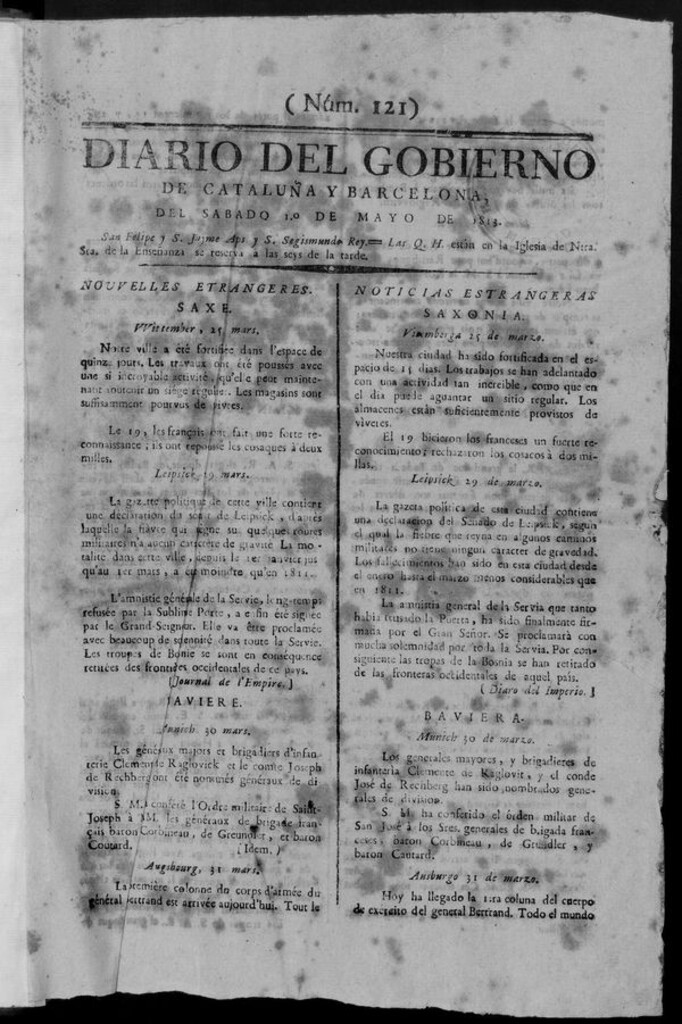 ( Núm. 121)
DIARIO DEL GOBIERNO
DE CATALUÑA Y BARCELONA,
DEL SABADO 1.º DE MAYO DE 1813.
San Felipe y S. Jayme Aps y S. Segismundo Rey.= Las Q. H. están en la Iglesia de Ntra.
Sra. de la Enseñanza se reserva a las seys de la tarde.
NOUVELLES ETRANGERES.
SAXE.
Wittember, 25 mars.
Notre ville a été fortifiée dans l'espace de
quinze jours. Les travaux ont été poussés avec
une si incroyable activité, qu'elle peut mainte-
nant soutenir un siège régulier. Les magasins sont
suffisamment pourvus de vivres.
Le 19, les français ont fait une forte re-
connaissance; ils ont repoussé les cosaques à deux
milles.
Leipsick 29 mars.
La gazette politique de cette ville contient
une déclaration du sénat de Leipsick, d'après
laquelle la fièvre qui règne sur quelques routes
militaires n'a aucun caractère de gravité La mo-
talité dans cette ville, depuis le 1er janvier jus
qu'au 1er mars, a été moindre qu'en 1811.
L'amnistie générale de la Servie, long-temps
refusée par la Sublime Porte, a enfin été signée
par le Grand-Seigneur. Elle va être proclamée
avec beaucoup de solennité dans toute la Servie.
Les troupes de Bosnie se sont en conséquence
retirées des frontières occidentales de ce pays.
[Journal de l'Empire.]
BAVIERE.
Munich 30 mars.
Les généraux majors et brigadiers d'infan-
terie Clemenide Raglovick et le comte Joseph
de Rechberg ont été nommés généraux de di
vision.
S. M. a conféré l'Ordre militaire de Saint-
Joseph à MM. les généraux de brigade fran-
çais baron Corbineau, de Greundler, et baron
Coutard. (Idem.)
Augsbourg, 31 mars.
La première colonne du corps d'armée du
général Bertrand est arrivée aujourd'hui. Tout le
NOTICIAS ESTRANGERAS
SAXONIA.
Vitemberga 25 de marzo.
Nuestra ciudad ha sido fortificada en el es-
pacio de 15 dias. Los trabajos se han adelantado
con una actividad tan increible, como que en
el dia puede aguantar un sitio regular. Los
almacenes están suficientemente provistos de
víveres.
El 19 hicieron los franceses un fuerte re-
conocimiento; rechazaron los cosacos à dos mi-
llas.
Leipsick 29 de marzo.
La gazeta política de esta ciudad contiene
una declaracion del Senado de Leipsick, segun
el qual la fiebre que reyna en algunos caminos
militares no tiene ningun caracter de gravedad.
Los fallecimientos han sido en esta ciudad desde
el enero hasta el marzo menos considerables que
en 1811.
La amnistia general de la Servia que tanto
habia rusado la Puerta, ha sido finalmente fir-
mada por el Gran Señor. Se proclamará con
mucha solemnidad por toda la Servia. Por con-
siguiente las tropas de la Bosnia se han retirado
de las fronteras occidentales de aquel país.
( Diaro del Imperio. ]
BAVIERA.
Munich 30 de marzo.
Los generales mayores, y brigadieres de
infanteria Clemente de Raglovit, y el conde
José de Recnberg han sido nombrados gene-
rales de division.
S. M. ha conferido el órden militar de
San José à los Sres. generales de brigada fran-
ceses, baron Corbineau, de Grundler, y
baron Cautard.
Ausburgo 31 de marzo.
Hoy ha llegado la 1.ra coluna del cuerpo
de exercito del general Bertrand. Todo el mundo